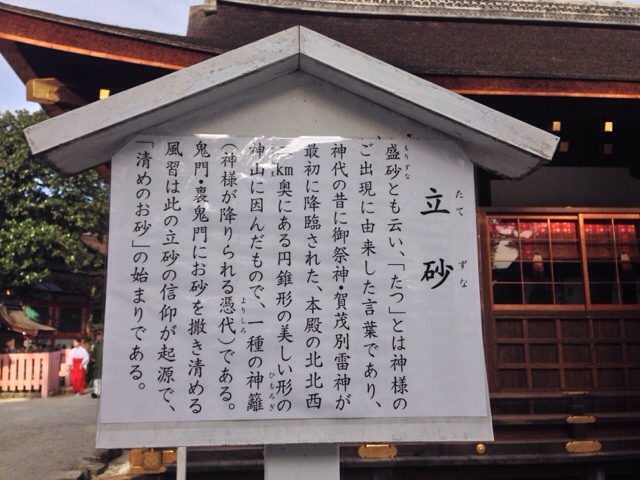 立砂
たてずな
盛砂とも云い、「たつ」とは神様の
もりずな
ご出現に由来した言葉であり、
神代の昔に御祭神・賀茂別雷神が
最初に降臨された、本殿の北北西
km奥にある円錐形の美しい形の
神山に因んだもので、一種の神籬
ひもろぎ
(神様が降りられる憑代)である。
よりしろ
鬼門・裏鬼門にお砂を撒き清める
風習は此の立砂の信仰が起源で、
「清めのお砂」の始まりである。